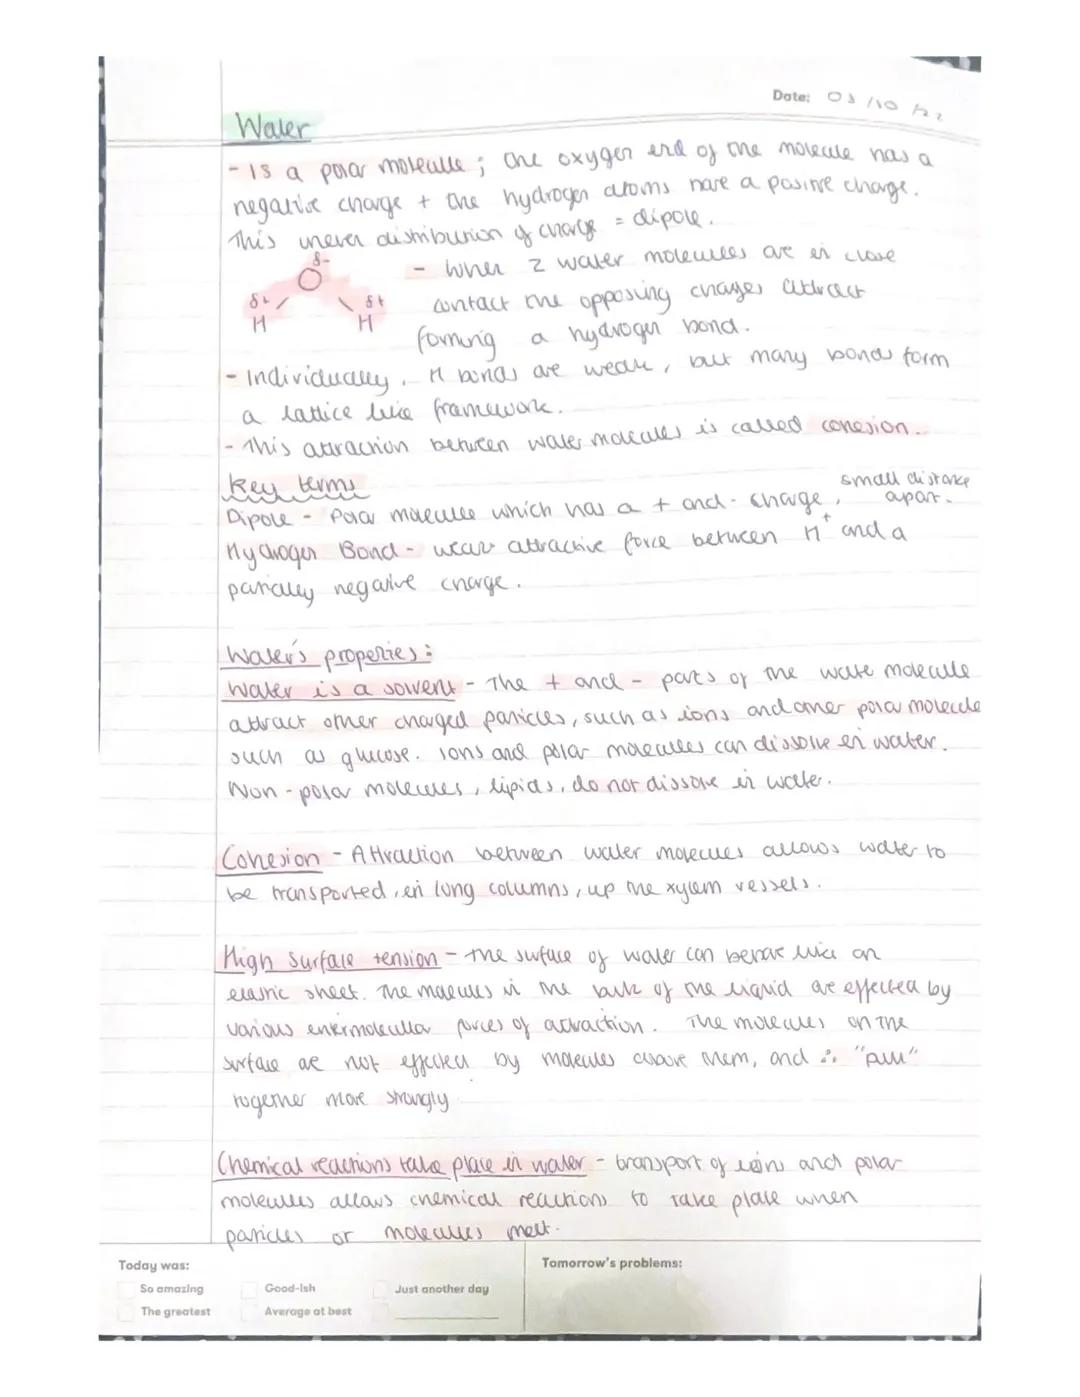 Date: 03/10/22
Water
- Is a polar molecule ; the oxygen end of the molecule has a
negative charge + the hydrogen atoms have a positive charge.
This uneven distribution of charge = dipole.
δ-
O
δ+ δ+
H H
- When 2 water molecules are in close
contact the opposing charges attract
forming a hydrogen bond.
- Individually, H bonds are weak, but many bonds form
a lattice like framework.
- This attraction between water molecules is called cohesion.
Key terms
Dipole - Polar molecule which has a + and - charge, small distance apart.
Hydrogen Bond - weak attractive force between H+ and a
partially negative charge.
Water's properties:
Water is a solvent - The + and - parts of the water molecule
attract other charged particles, such as ions and other polar molecule
such as glucose. Ions and polar molecules can dissolve in water.
Non-polar molecules, lipids, do not dissolve in water.
Cohesion - Attraction between water molecules allows water to
be transported, in long columns, up the xylem vessels.
High surface tension - The surface of water can behave like an
elastic sheet. The molecules in the bulk of the liquid are effected by
various intermolecular forces of attraction. The molecules on the
surface are not effected by molecules above them, and ∴ "pull"
together more strongly
Chemical reactions take place in water - transport of ions and polar
molecules allows chemical reactions to take place when
particles or molecules meet.
Today was:
So amazing Good-ish Just another day
The greatest Average at best
Tomorrow's problems: